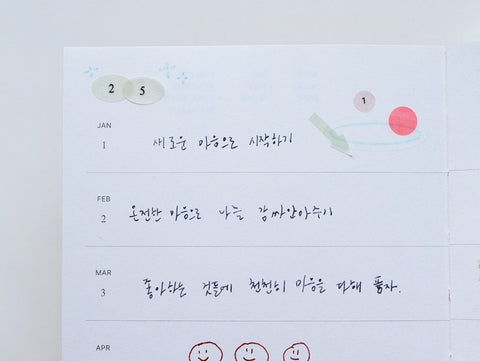 2 5
1
JAN
1 새로운 마음으로 시작하기
FEB
2 온전한 마음으로 나를 감싸안아주기
MAR
3 좋아하는 것들에 천천히 마음을 다해 품자.
APR